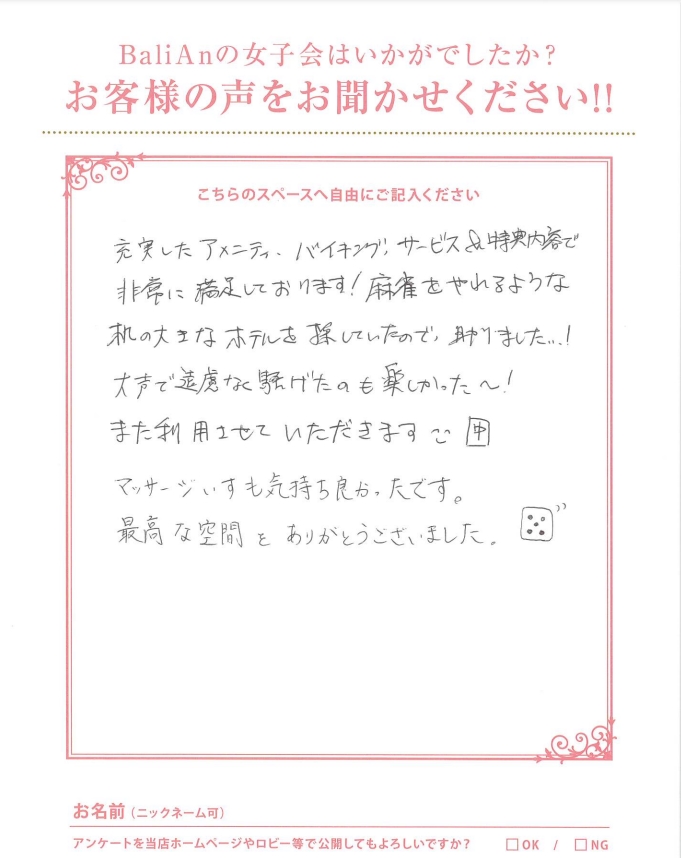 BaliAnの女子会はいかがでしたか?
お客様の声をお聞かせください!!
こちらのスペースへ自由にご記入ください
充実したアメニティ、バイキング、サービス&特典内容で
非常に満足しております!麻雀をやれるような
机の大きなホテルを探していたので、助かりました...!
大声で遠慮なく騒げたのも楽しかった〜!
また利用させていただきます 中
マッサージいすも気持ち良かったです。
最高な空間をありがとうございました。
お名前(ニックネーム可)
アンケートを当店ホームページやロビー等で公開してもよろしいですか? □OK / □NG